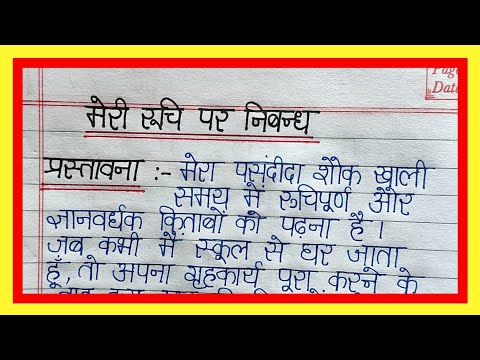 Page
Date
मेरी रूचि पर निबन्ध
प्रस्तावना :- मेरा पसंदीदा शौक खाली
समय में रूचिपूर्ण और
ज्ञानवर्धक किताबों को पढ़ना है।
जब कभी मैं स्कूल से घर जाता
हूँ, तो अपना गृहकार्य पूरा करने के